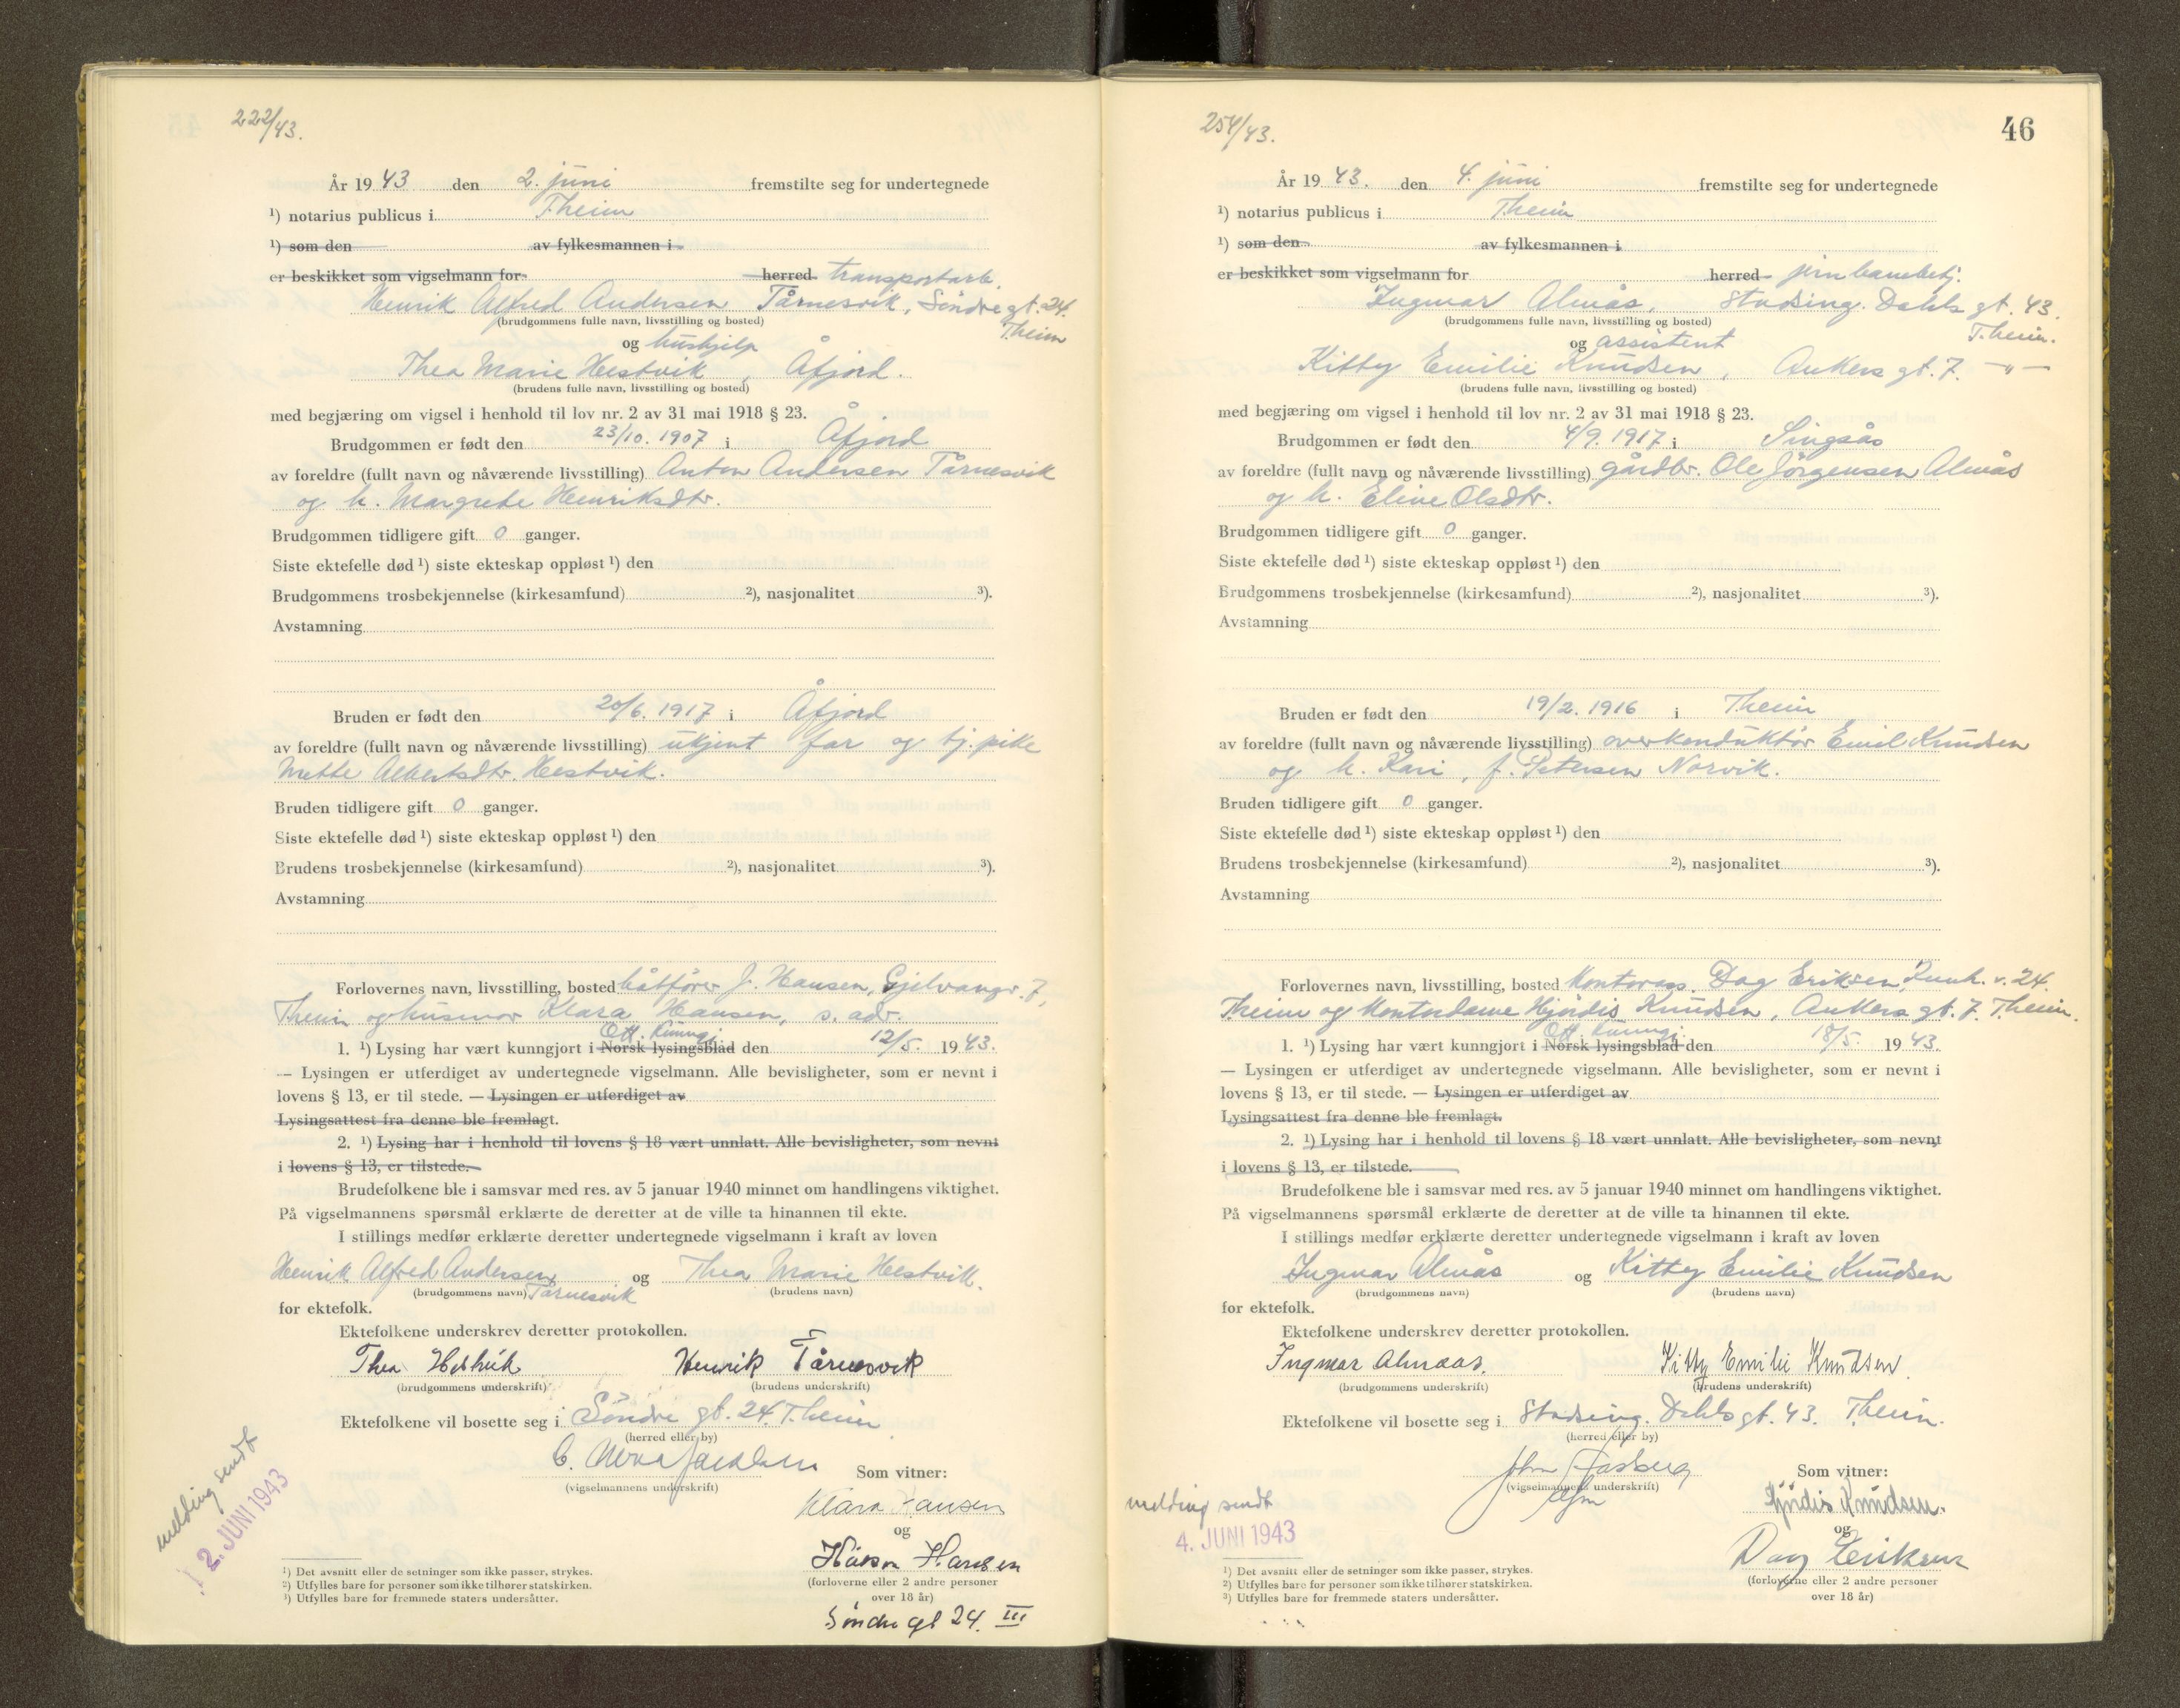 222/43.
År 19 43 den 2. juni fremstilte seg for undertegnede
¹) notarius publicus i Theim
¹) som den av fylkesmannen i
er beskikket som vigselmann for herred transportarb.
Henrik Alfred Andersen Tårnesvik, Söndre gt. 24.
(brudgommens fulle navn, livsstilling og bosted) Theim
og hushjelp
Thea Marie Hestvik, Åfjord.
(brudens fulle navn, livsstilling og bosted)
med begjæring om vigsel i henhold til lov nr. 2 av 31 mai 1918 § 23.
Brudgommen er født den 23/10. 1907 i Åfjord
av foreldre (fullt navn og nåværende livsstilling) Anton Andersen Tårnesvik
og h. Margrete Henriksdtr.
Brudgommen tidligere gift 0 ganger.
Siste ektefelle død ¹) siste ekteskap oppløst ¹) den
Brudgommens trosbekjennelse (kirkesamfund) ²), nasjonalitet ³).
Avstamning
Bruden er født den 20/6. 1917 i Åfjord
av foreldre (fullt navn og nåværende livsstilling) ukjent far og tj.pike
Mette Albertsdtr. Hestvik.
Bruden tidligere gift 0 ganger.
Siste ektefelle død ¹) siste ekteskap oppløst ¹) den
Brudens trosbekjennelse (kirkesamfund) ²), nasjonalitet ³).
Avstamning
Forlovernes navn, livsstilling, bosted båtfører J. Hansen, Gjelvangv. 7,
Theim og husmor Klara Hansen, s. adr.
Off. Kunngj.
1. ¹) Lysing har vært kunngjort i Norsk lysingsblad den 12/5. 19 43.
— Lysingen er utferdiget av undertegnede vigselmann. Alle bevisligheter, som er nevnt i
lovens § 13, er til stede. — Lysingen er utferdiget av
Lysingsattest fra denne ble fremlagt.
2. ¹) Lysing har i henhold til lovens § 18 vært unnlatt. Alle bevisligheter, som nevnt
i lovens § 13, er tilstede.
Brudefolkene ble i samsvar med res. av 5 januar 1940 minnet om handlingens viktighet.
På vigselmannens spørsmål erklærte de deretter at de ville ta hinannen til ekte.
I stillings medfør erklærte deretter undertegnede vigselmann i kraft av loven
Henrik Alfred Andersen og Thea Marie Hestvik.
(brudgommens navn) Tårnesvik (brudens navn)
for ektefolk.
Ektefolkene underskrev deretter protokollen.
Thea Hestvik Henrik Tårnesvik
(brudgommens underskrift) (brudens underskrift)
Ektefolkene vil bosette seg i Söndre gt. 24. Theim
(herred eller by)
(vigselmannens underskrift) Som vitner:
Klara Hansen
og
Håkon Hansen
(forloverne eller 2 andre personer
over 18 år)
Söndre gt 24. III
melding sendt
2. JUNI 1943
¹) Det avsnitt eller de setninger som ikke passer, strykes.
²) Utfylles bare for personer som ikke tilhører statskirken.
³) Utfylles bare for fremmede staters undersåtter.
254/43.
46
År 19 43. den 4. juni fremstilte seg for undertegnede
¹) notarius publicus i Theim
¹) som den av fylkesmannen i
er beskikket som vigselmann for herred jernbanebetj.
Ingmar Almås, Stadsing. Dahls gt. 43.
(brudgommens fulle navn, livsstilling og bosted) Theim.
og assistent
Kitty Emilie Knudsen, Ankers gt. 7. —"—
(brudens fulle navn, livsstilling og bosted)
med begjæring om vigsel i henhold til lov nr. 2 av 31 mai 1918 § 23.
Brudgommen er født den 4/9. 1917 i Singsås
av foreldre (fullt navn og nåværende livsstilling) gårdbr. Ole Jörgensen Almås
og h. Eline Olsdtr.
Brudgommen tidligere gift 0 ganger.
Siste ektefelle død ¹) siste ekteskap oppløst ¹) den
Brudgommens trosbekjennelse (kirkesamfund) ²), nasjonalitet ³).
Avstamning
Bruden er født den 19/2. 1916 i Theim
av foreldre (fullt navn og nåværende livsstilling) overkonduktör Emil Knudsen
og h. Kari, f. Petersen Norvik.
Bruden tidligere gift 0 ganger.
Siste ektefelle død ¹) siste ekteskap oppløst ¹) den
Brudens trosbekjennelse (kirkesamfund) ²), nasjonalitet ³).
Avstamning
Forlovernes navn, livsstilling, bosted Kontorass. Dag Eriksen, v. 24.
Theim og Kontordame Hjördis Knudsen, Ankers gt. 7. Theim.
Off. Kunngj.
1. ¹) Lysing har vært kunngjort i Norsk lysingsblad den 18/5. 19 43.
— Lysingen er utferdiget av undertegnede vigselmann. Alle bevisligheter, som er nevnt i
lovens § 13, er til stede. — Lysingen er utferdiget av
Lysingsattest fra denne ble fremlagt.
2. ¹) Lysing har i henhold til lovens § 18 vært unnlatt. Alle bevisligheter, som nevnt
i lovens § 13, er tilstede.
Brudefolkene ble i samsvar med res. av 5 januar 1940 minnet om handlingens viktighet.
På vigselmannens spørsmål erklærte de deretter at de ville ta hinannen til ekte.
I stillings medfør erklærte deretter undertegnede vigselmann i kraft av loven
Ingmar Almås og Kitty Emilie Knudsen
(brudgommens navn) (brudens navn)
for ektefolk.
Ektefolkene underskrev deretter protokollen.
Ingmar Almaas. Kitty Emilie Knudsen
(brudgommens underskrift) (brudens underskrift)
Ektefolkene vil bosette seg i Stadsing. Dahls gt. 43. Theim.
(herred eller by)
(vigselmannens underskrift) Som vitner:
Hjördis Knudsen.
og
Dag Eriksen
(forloverne eller 2 andre personer
over 18 år)
melding sendt
4. JUNI 1943
¹) Det avsnitt eller de setninger som ikke passer, strykes.
²) Utfylles bare for personer som ikke tilhører statskirken.
³) Utfylles bare for fremmede staters undersåtter.